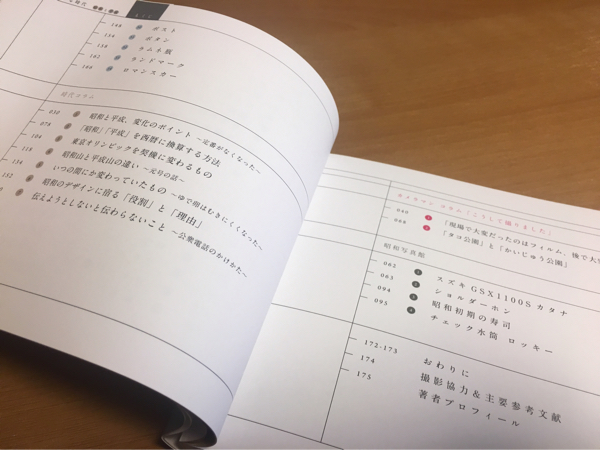 時代
168 ポスト
154 ボタン
158 ラムネ瓶
162 ランドマーク
160 ロマンスカー
時代コラム
030 昭和と平成、変化のポイント ~定番がなくなった~
070 「昭和」「平成」を西暦に換算する方法
106 東京オリンピックを契機に変わるもの
118 昭和山と平成山の違い ~元号の話~
134 いつの間にか変わっていたもの ~ゆで卵はむきにくくなった~
昭和のデザインに宿る「役割」と「理由」
伝えようとしないと伝わらないこと ~公衆電話のかけかた~
カメラマン コラム「こうして撮りました」
040 「現場で大変だったのはフィルム、後で大
068 「タコ公園」と「かいじゅう公園」
昭和写真館
062 スズキ GSX1100S カタナ
063 ショルダーホン
094 昭和初期の寿司
095 チェック水筒 ロッキー
172-173 おわりに
174 撮影協力&主要参考文献
175 著者プロフィール